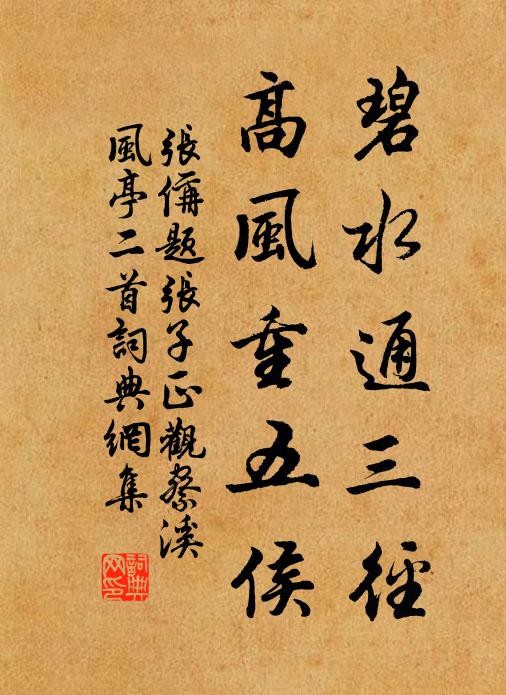 碧水通三徑
高風重五侯
張偁題張子正觀察溪
風亭二首詞典網集
詞典网印